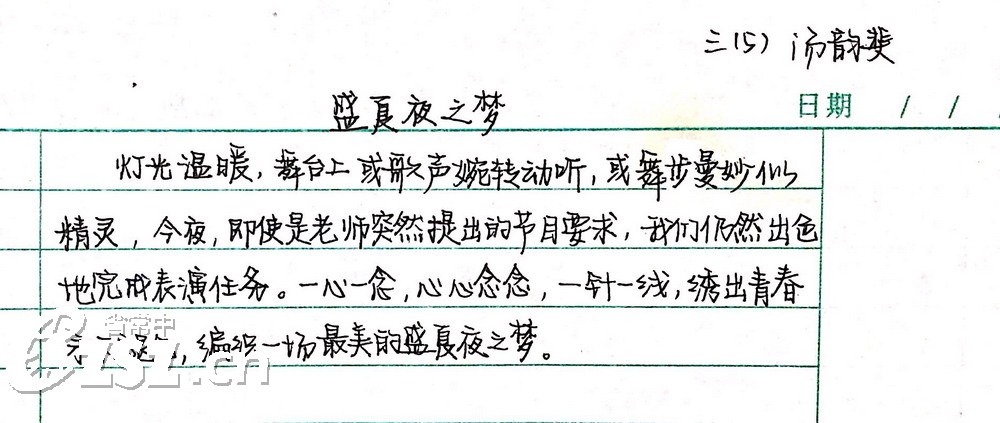 三(5) 汤韵斐
盛夏夜之梦
日期 / / /
灯光温暖，舞台上或歌声婉转动听，或舞步曼妙似
精灵，今夜，即使是老师突然提出的节目要求，我们仍然出色
地完成表演任务。一心一念，心心念念，一针一线，绣出青春
，编织一场最美的盛夏夜之梦。
省常中
CZSZ.cn